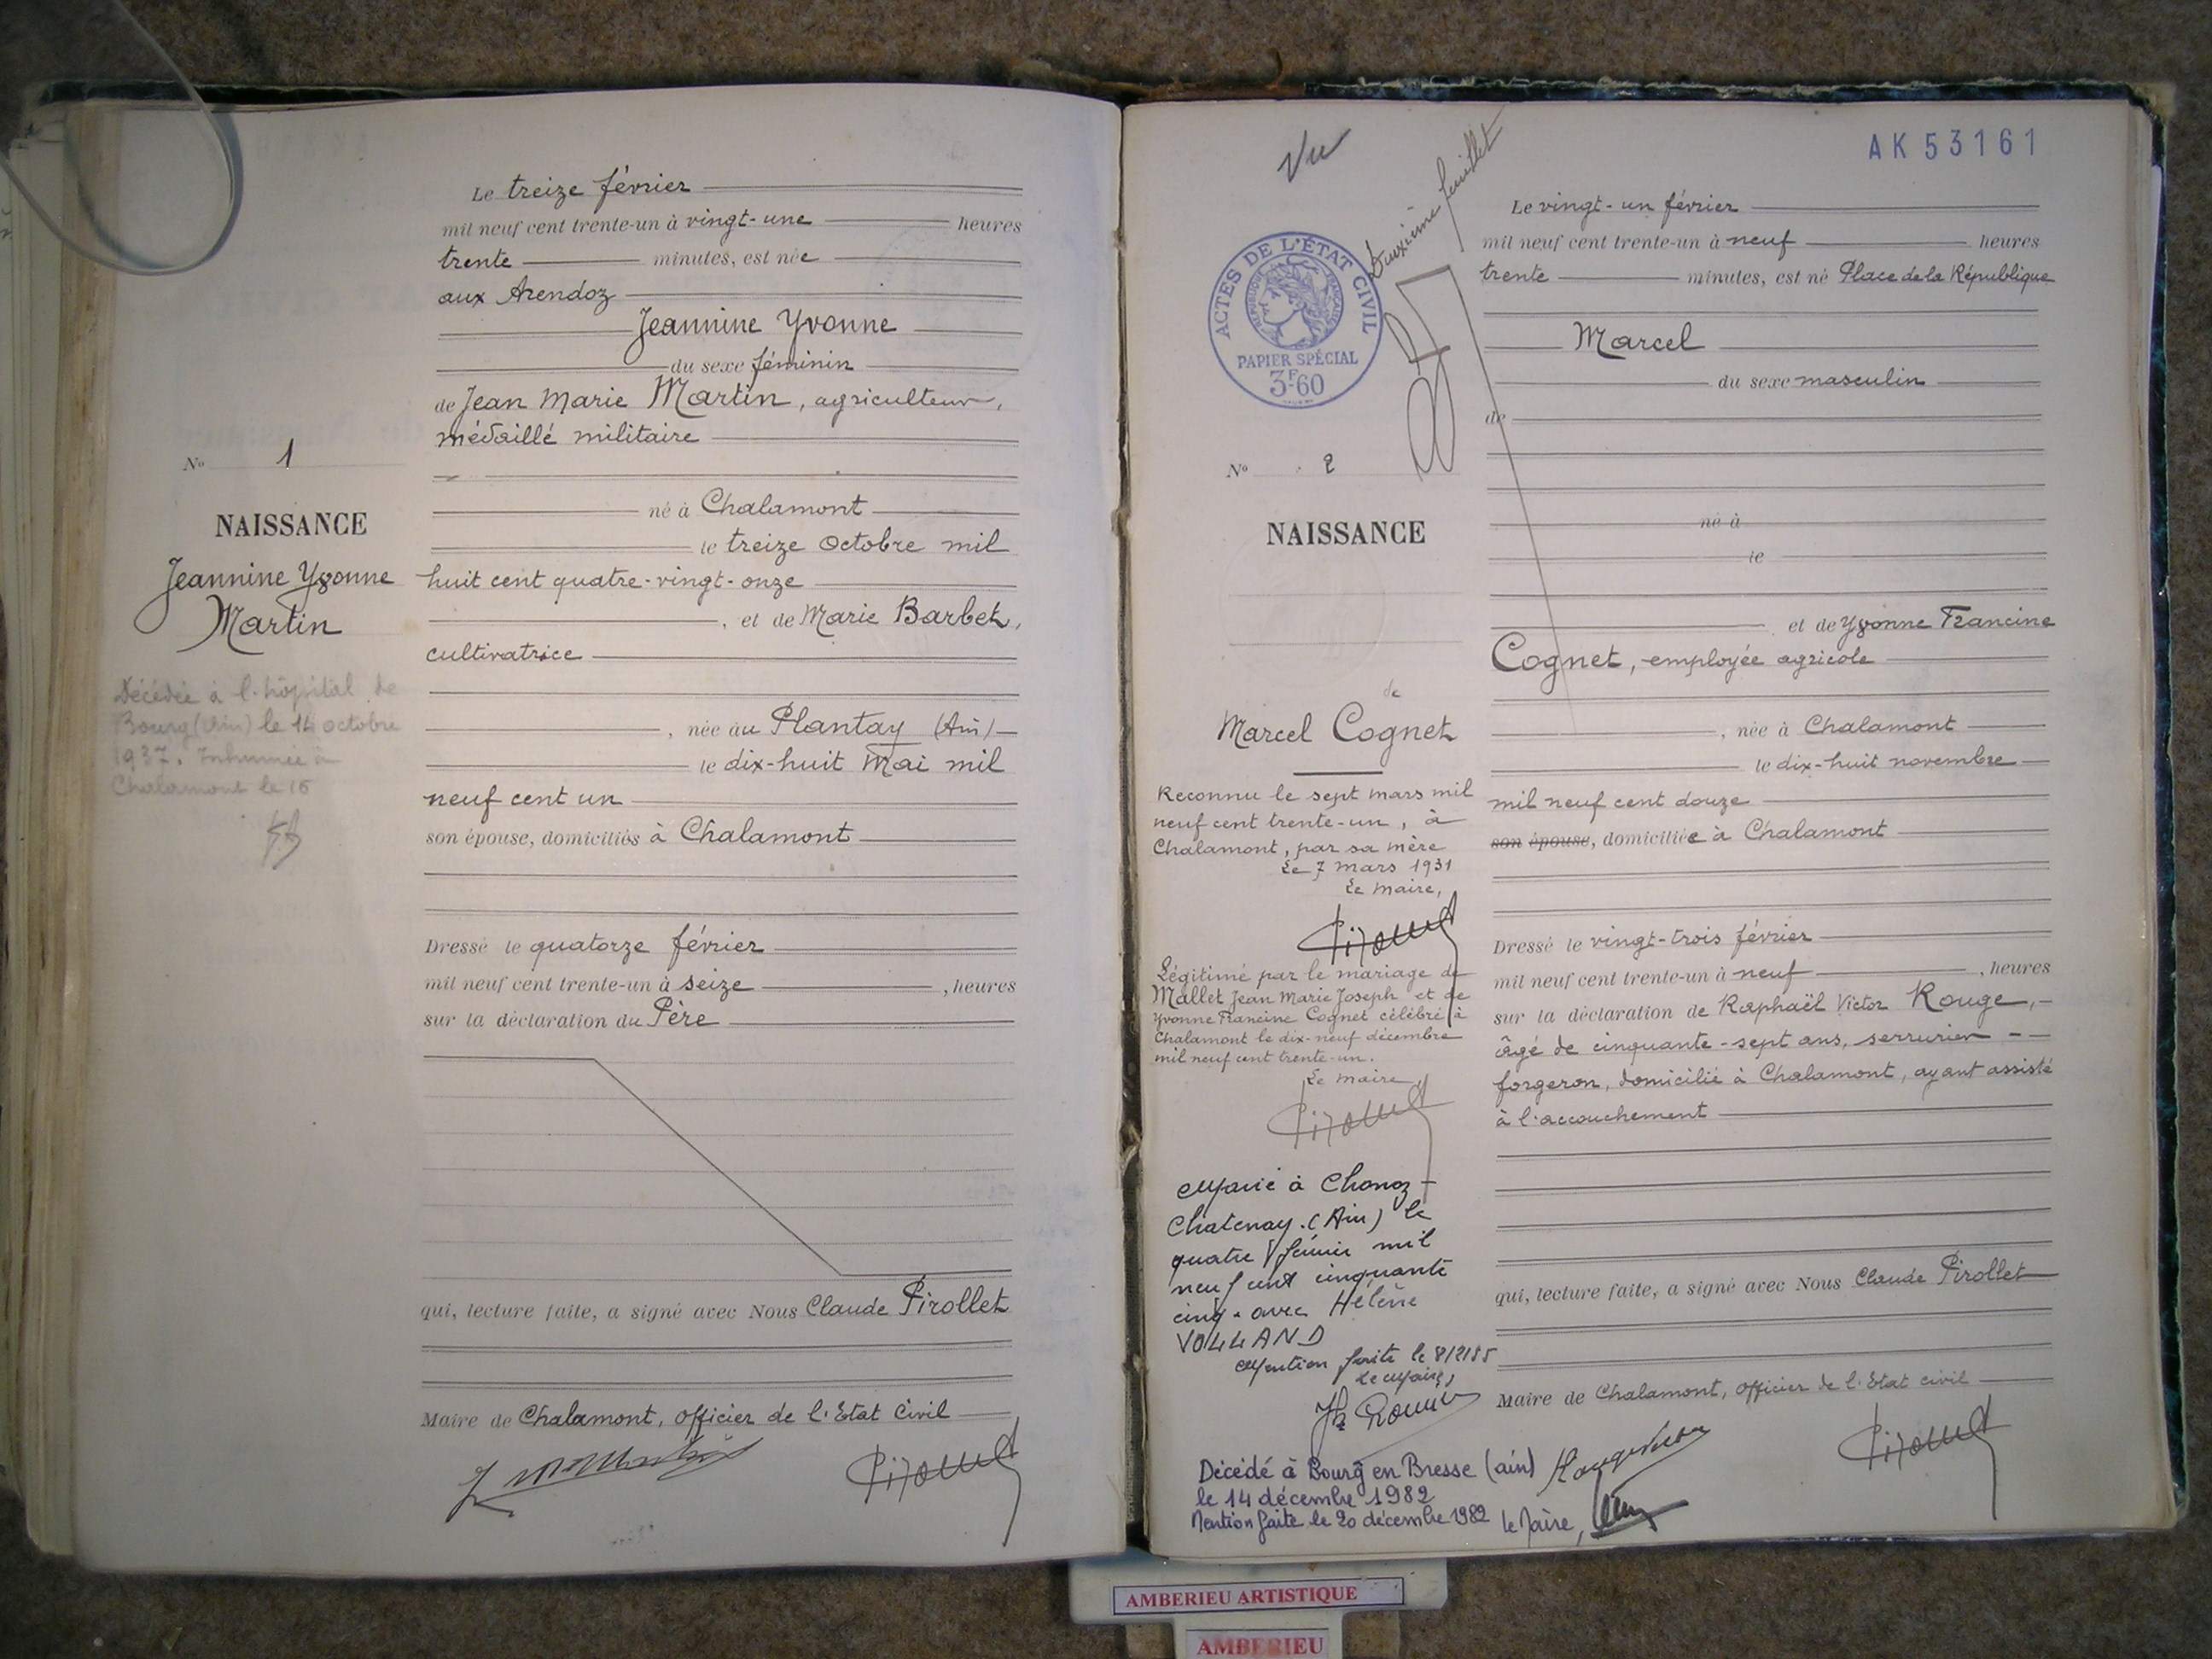 Le treize février
mil neuf cent trente-un à vingt-une heures
trente minutes, est née
aux Arendoz
Jeannine Yvonne
du sexe féminin
de Jean Marie Martin, agriculteur,
médaillé militaire
né à Chalamont
le treize Octobre mil
huit cent quatre-vingt-onze
, et de Marie Barbet,
cultivatrice
, née au Plantay (Ain)
le dix-huit Mai mil
neuf cent un
son épouse, domiciliés à Chalamont
Dressé le quatorze février
mil neuf cent trente-un à seize , heures
sur la déclaration du Père
qui, lecture faite, a signé avec Nous Claude Pirollet
Maire de Chalamont, officier de l'Etat Civil
Pirollet
No 1
NAISSANCE
Jeannine Yvonne
Martin
Décédée à l'hôpital de
Bourg (Ain) le 14 octobre
1937. Inhumée à
Chalamont le 16
Vu
Deuxième feuillet
AK 53161
ACTES DE L'ÉTAT CIVIL
RÉPUBLIQUE FRANÇAISE
PAPIER SPÉCIAL
3F-60
No 2
NAISSANCE
de
Marcel Cognet
Reconnu le sept mars mil
neuf cent trente-un, à
Chalamont, par sa mère
Le 7 mars 1931
Le maire,
Pirollet
Légitimé par le mariage de
Mallet Jean Marie Joseph et de
Yvonne Francine Cognet célébré à
Chalamont le dix-neuf décembre
mil neuf cent trente-un.
Le maire,
Pirollet
Marié à Chanoz-
Chatenay. (Ain) le
quatre février mil
neuf cent cinquante
cinq. avec Hélène
VOLLAND
Mention faite le 8/2/55
Le Maire,
Décédé à Bourg en Bresse (ain)
le 14 décembre 1982
Mention faite le 20 décembre 1982 le Maire,
Le vingt-un février
mil neuf cent trente-un à neuf heures
trente minutes, est né Place de la République
Marcel
du sexe masculin
de
né à
le
et de Yvonne Francine
Cognet, employée agricole
, née à Chalamont
le dix-huit novembre
mil neuf cent douze
son épouse, domiciliée à Chalamont
Dressé le vingt-trois février
mil neuf cent trente-un à neuf , heures
sur la déclaration de Raphaël Victor Rouge,
âgé de cinquante-sept ans, serrurier
forgeron, domicilié à Chalamont, ayant assisté
à l'accouchement
qui, lecture faite, a signé avec Nous Claude Pirollet
Maire de Chalamont, officier de l'Etat civil
Pirollet
AMBERIEU ARTISTIQUE
AMBERIEU